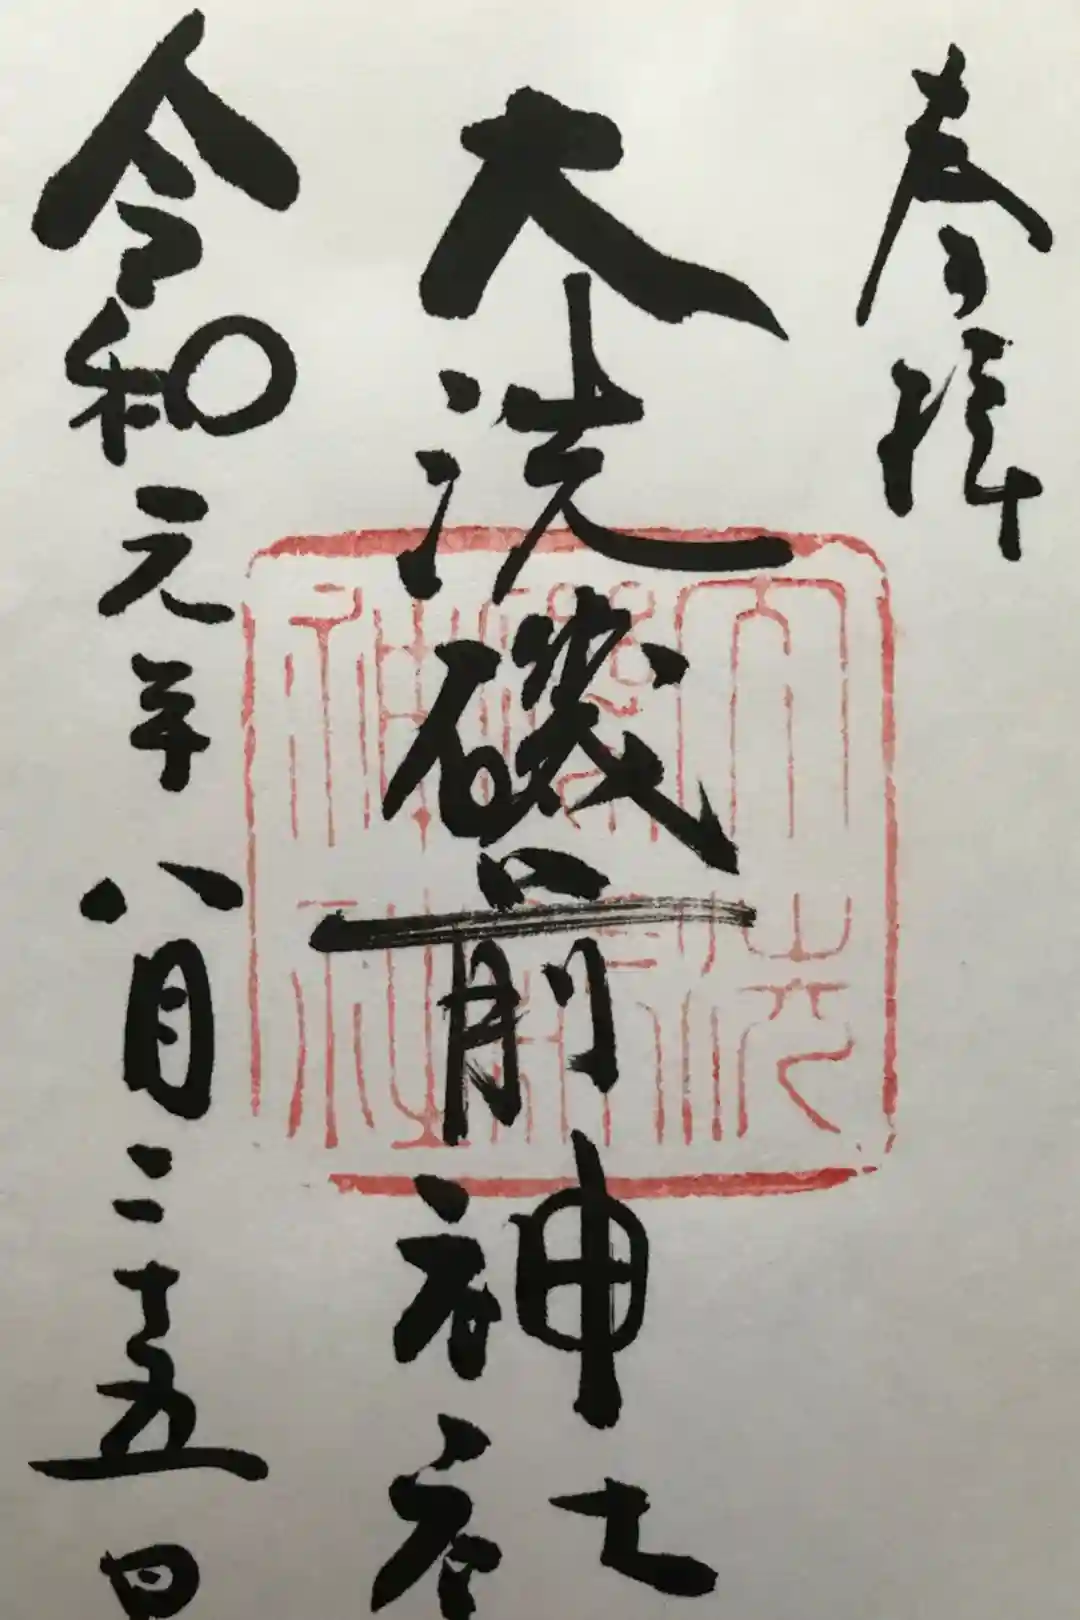 奉拝
大洗磯前神社
令和元年八月二十五日
大洗
磯前
神社